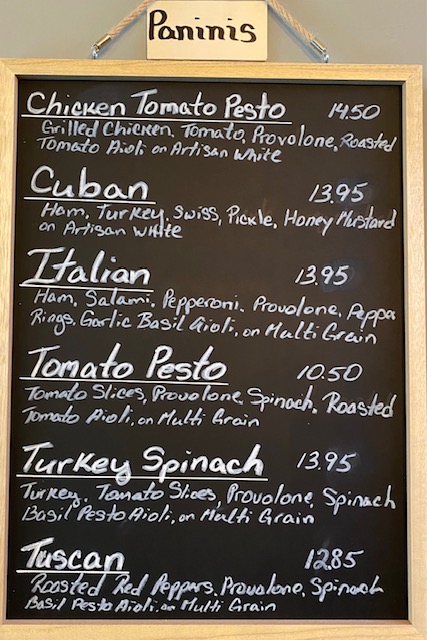 Paninis
Chicken Tomato Pesto 14.50
Grilled Chicken, Tomato, Provolone, Roasted
Tomato Aioli on Artisan White
Cuban 13.95
Ham, Turkey, Swiss, Pickle, Honey Mustard
on Artisan White
Italian 13.95
Ham, Salami, Pepperoni, Provolone, Peppa
Rings, Garlic Basil Aioli, on Multi Grain
Tomato Pesto 10.50
Tomato Slices, Provolone, Spinach, Roasted
Tomato Aioli, on Multi Grain
Turkey Spinach 13.95
Turkey, Tomato Slices, Provolone, Spinach
Basil Pesto Aioli, on Multi Grain
Tuscan 12.85
Roasted Red Peppars, Provolone, Spinach
Basil Pesto Aioli, on Multi Grain